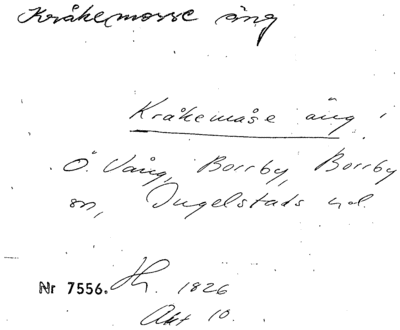 Kråkemosse äng
Kråkemåse äng
Ö. Vång, Borrby, Borrby
sn, Ingelstads hd.
Nr 7556. Lh. 1826
Akt 10.